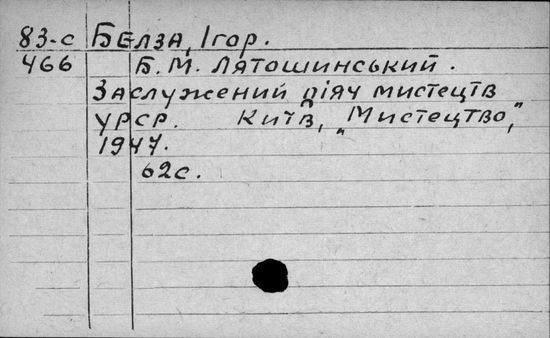 83-с БЕЛЗА, Ігор.
466 Б. М. Лятошинський.
Заслужений діяч мистецтв
УРСР. Київ, „Мистецтво,"
1947.
62с.